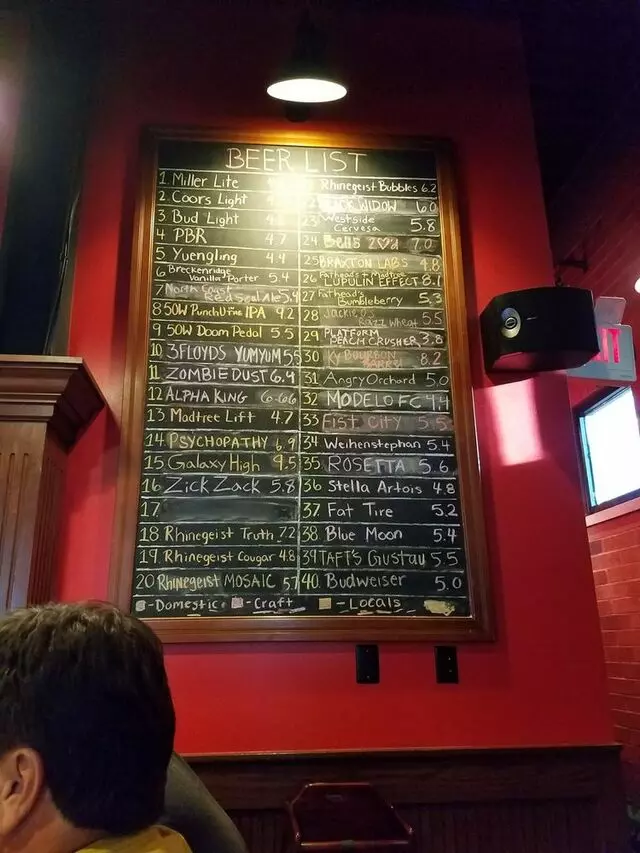 BEER LIST
1. Miller Lite
2. Coors Light
3 Bud Light
4 PBR 4.7
5 Yuengling 4.4
6 Breckenridge Vanilla Porter 5.4
7 North Coast Red Seal Ale 5.4
8 50W Punch U IPA 9.2
9 50W Doom Pedal 5.5
10 3FLOYDS YUMYUM 5.5
11 ZOMBIE DUST 6.4
12 ALPHA KING 6.66
13 Madtree Lift 4.7
14 PSYCHOPATHY 6.9
15 Galaxy High 9.5
16 Zick Zack 5.8
17
18 Rhinegeist Truth 7.2
19. Rhinegeist Cougar 4.8
20 Rhinegeist MOSAIC 5.7
Rhinegeist Bubbles 6.2
WIDOW 6.0
23 Westside Cervesa 5.8
24 Bells 7.0
25 BRAXTON LABS 4.8
26 Fatheads + Madtree LUPULIN EFFECT 8.1
27 Fathead's Bumbleberry 5.3
28 Jackie O's Razz Wheat 5.5
29 PLATFORM PEACH CRUSHER 3.8
30 KY BOURBON 8.2
31 Angry Orchard 5.0
32 MODELO FC 4.4
33 FIST CITY 5.5
34 Weihenstephan 5.4
35 ROSETTA 5.6
36 Stella Artois 4.8
37 Fat Tire 5.2
38 Blue Moon 5.4
39 TAFT'S Gustav 5.5
40. Budweiser 5.0
-Domestic -Craft -Locals